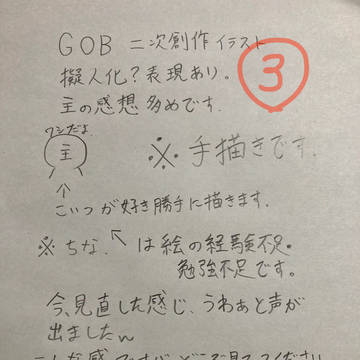 GOB 二次創作イラスト
擬人化?表現あり。
③
主の感想多めです.
ワシだよ
主
※手描きです.
↑
こいつが好き勝手に描きます.
※ちな.↖は絵の経験不足・
勉強不足です。
今、見直した感じ、うわぁと声が
出ましたㄟ